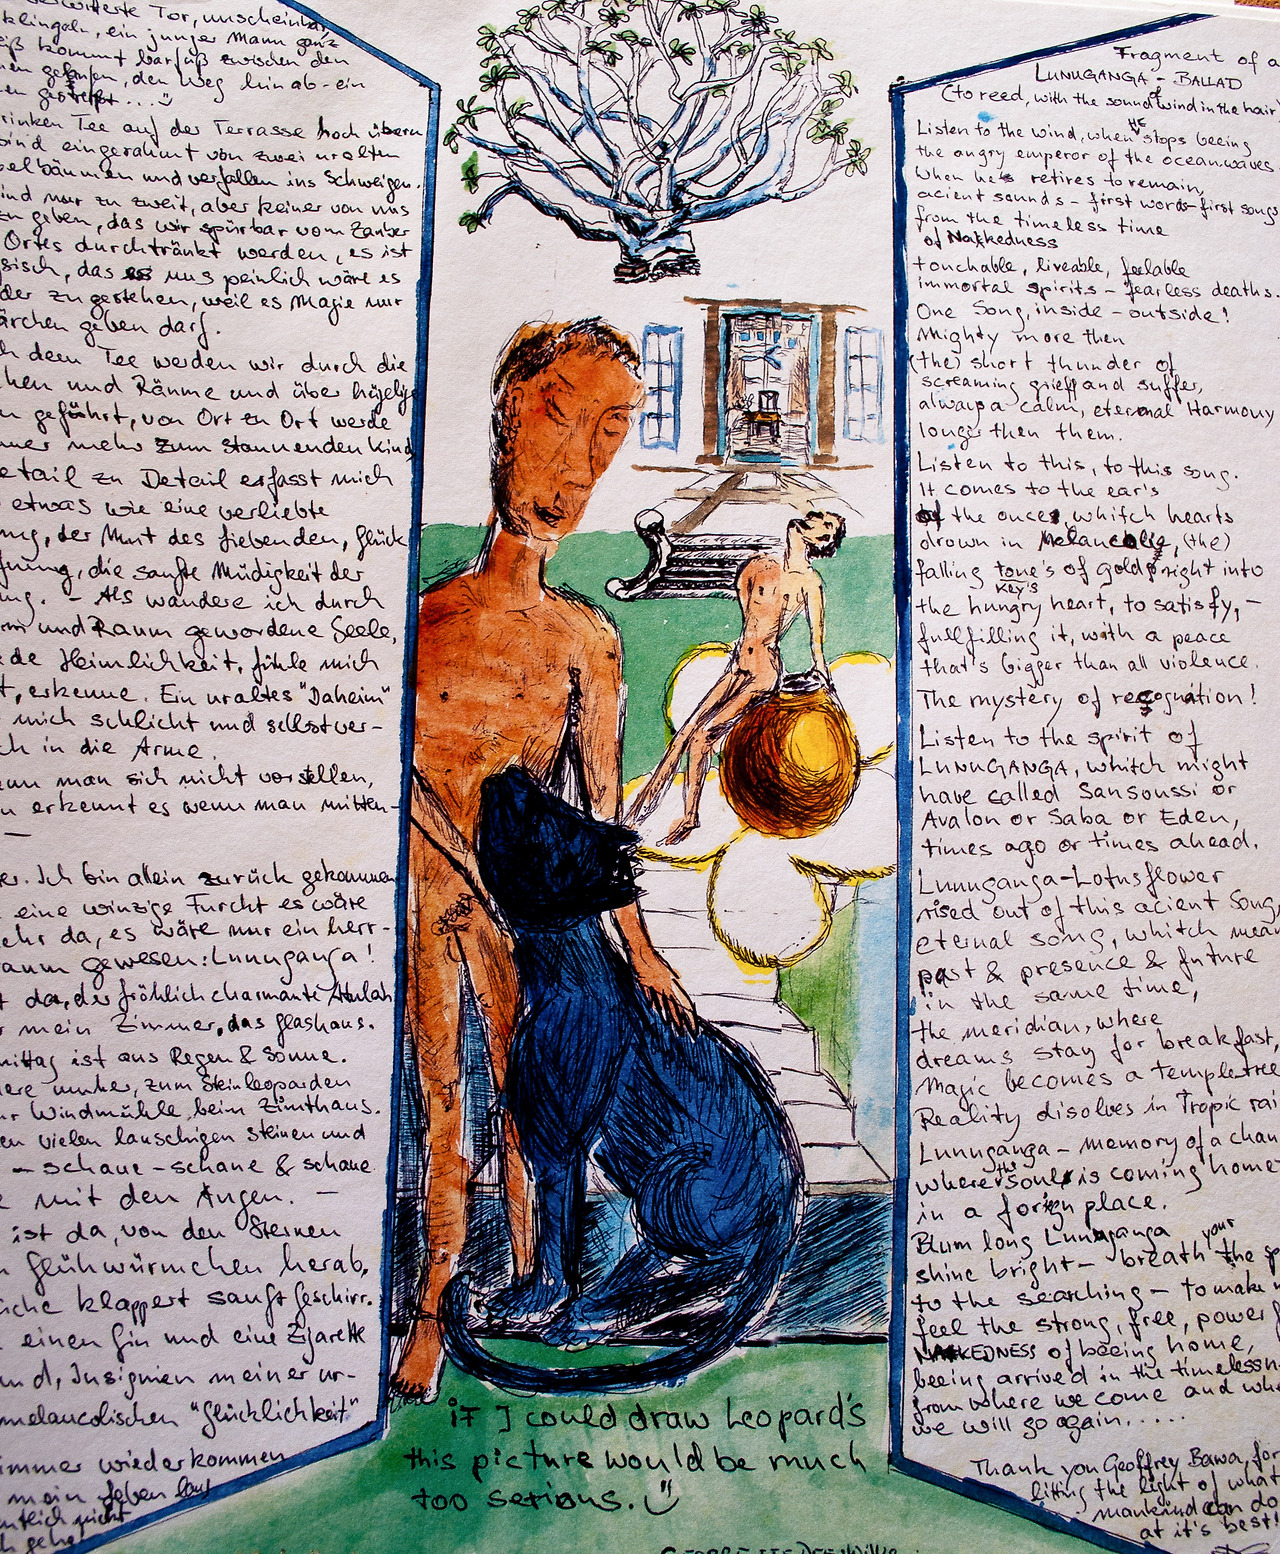 verwitterte Tor, unscheinbar,
klingeln, ein junger Mann ganz
weiß kommt barfuß zwischen den
den Weg hinab-ein
trinken Tee auf der Terrasse hoch überm
sind eingerahmt von zwei uralten
und verfallen ins Schweigen.
sind nur zu zweit, aber keiner von uns
zu geben, das wir spürbar vom Zauber
Ortes durchtränkt werden, es ist
das es uns peinlich wäre es
der zu gestehen, weil es Magie nur
ärchen geben darf.
dem Tee werden wir durch die
chen und Räume und über hügelige
geführt, von Ort zu Ort werde
mer mehr zum staunenden Kind
etail zu Detail erfasst mich
etwas wie eine verliebte
ung, der Mut des Liebenden, Glück
fnung, die sanfte Müdigkeit der
ung. - Als wandere ich durch
und Raum gewordene Seele,
de Heimlichkeit, fühle mich
t, erkenne. Ein uraltes "Daheim"
mich schlicht und selbstver-
ch in die Arme.
ann man sich nicht vorstellen,
erkennt es wenn man mitten-
—
er. Ich bin allein zurück gekommen
eine winzige Furcht es wäre
ehr da, es wäre nur ein herr-
raum gewesen: Lunuganga!
da, der fröhlich charmante
mein Zimmer, das Glashaus.
mittag ist aus Regen & Sonne.
ere umher, zum Steinleoparden
ur Windmühle, beim Zimthaus.
en vielen lauschigen Steinen und
- schaue - schaue & schaue
mit den Augen. —
ist da, von den Sternen
Glühwürmchen herab,
üche klappert sanft Geschirr.
einen Gin und eine Zigarette
und, Insignien meiner ur-
melancolischen "Glücklichkeit"
immer wiederkommen
mein Leben lang
ntlich nicht
Fragment of a
LUNUGANGA - BALLAD
(to reed, with the sound of wind in the hair)
Listen to the wind, when HE stops beeing
the angry emperor of the oceanwaves
When he's retires to remain,
acient sounds - first words - first songs
from the timeless time
of Nakkedness
touchable, liveable, feelable
immortal spirits - fearless deaths.
One Song, inside - outside!
Mighty more then
(the) short thunder of
screaming grieff and suffer,
always a calm, eternal Harmony
longer then them.
Listen to this, to this song.
It comes to the ear's
of the once, whitch hearts
drown in Melancolie, (the)
falling tone's of gold right into
KEY's
the hungry heart, to satisfy, -
fullfilling it, with a peace
that's bigger than all violence.
The mystery of recognition!
Listen to the spirit of
LUNUGANGA, whitch might
have called Sansoussi or
Avalon or Saba or Eden,
times ago or times ahead.
Lunuganga-Lotusflower
rised out of this acient Song,
eternal song, whitch mean
past & presence & future
in the same time,
the meridian, where
dreams stay for breakfast,
Magic becomes a templetree
Reality disolves in Tropic rai
Lunuganga - memory of a chan
where the soul is coming home
in a foreign place.
Blum long Lunuganga
shine bright - breath your the sp
to the searching - to make
feel the strong, free, power
NAKKEDNESS of beeing home,
beeing arrived in the timelessn
from where we come and whe
we will go again.....
Thank you Geoffrey Bawa, for
litting the light of what
mankind can do
at it's best!
iF I could draw Leopard's
this picture would be much
too serious.